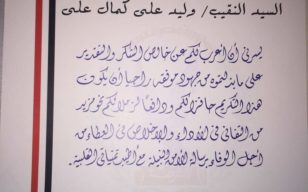 السيد النقيب/ وليد على كمال على
يسرني أن أعرب لكم عن خالص الشكر والتقدير
على ما بذلتموه من جهود موفقة راجيا أن يكون
هذا التكريم حافزا لكم ودافعا لزملائكم نحو مزيد
من التفاني في الأداء والإخلاص في العطاء من
أجل الوفاء برسالة الأمن النبيلة مع أطيب تمنياتى القلبية.